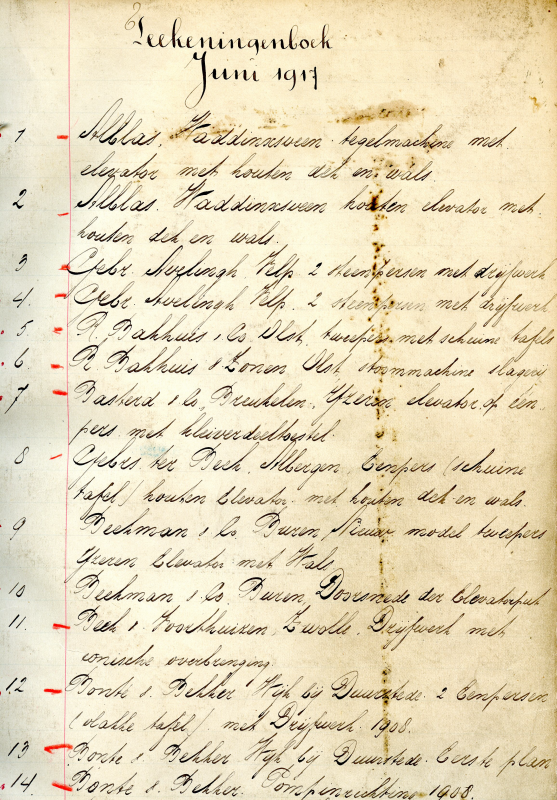 Teekeningenboek
Juni 1917
1 Alblas, Waddinxveen tegelmachine met
elevator met houten dek en wals.
2 Alblas. Waddinxveen houten elevator met
houten dek en wals.
3 Gebr. Avelingh Velp 2 steenpersen met drijfwerk
4. Gebr. Avelingh Velp. 2 steenpersen met drijfwerk
5 R. Bakhuis & Co. Olst, tweepers met schuine tafels
6. R Bakhuis & Zonen Olst stoommachine slagerij
7 Basterd & Co, Breukelen, Yzeren elevator op een
pers met kleiverdeeltoestel.
8 Gebrs ter Beek, Albergen, Eenpers (schuine
tafel) houten Elevator met houten dek en wals.
9 Beekman & Co Buren Nieuw model tweepers
Yzeren Elevator met Wals.
10 Beekman & Co. Buren, Doorsnede der Elevatorput
11. Beek & Voorthuizen, Zwolle. Drijfwerk met
conische overbrenging.
12 Bonte & Bekker Wijk bij Duurstede. 2 Eenpersen
(vlakke tafel) met Drijfwerk. 1908.
13 Bonte & Bekker Wijk bij Duurstede. Eerste plan
14 Bonte & Bekker. Pompinrichting 1908.